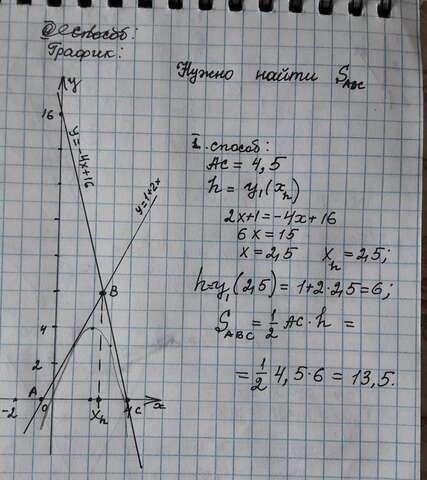 способ:
График:
Нужно найти S_ABC
y
16
y=-4x+16
y=1+2x
B
4
2
A
-2
0
x_h
4
C
x
I. способ:
AC = 4,5
h = y₁(x_h)
2x+1=-4x+16
6x=15
x=2,5 x_h=2,5;
h=y₁(2,5)=1+2·2,5=6;
S_ABC=1/2 AC·h =
=1/2 4,5·6 = 13,5.